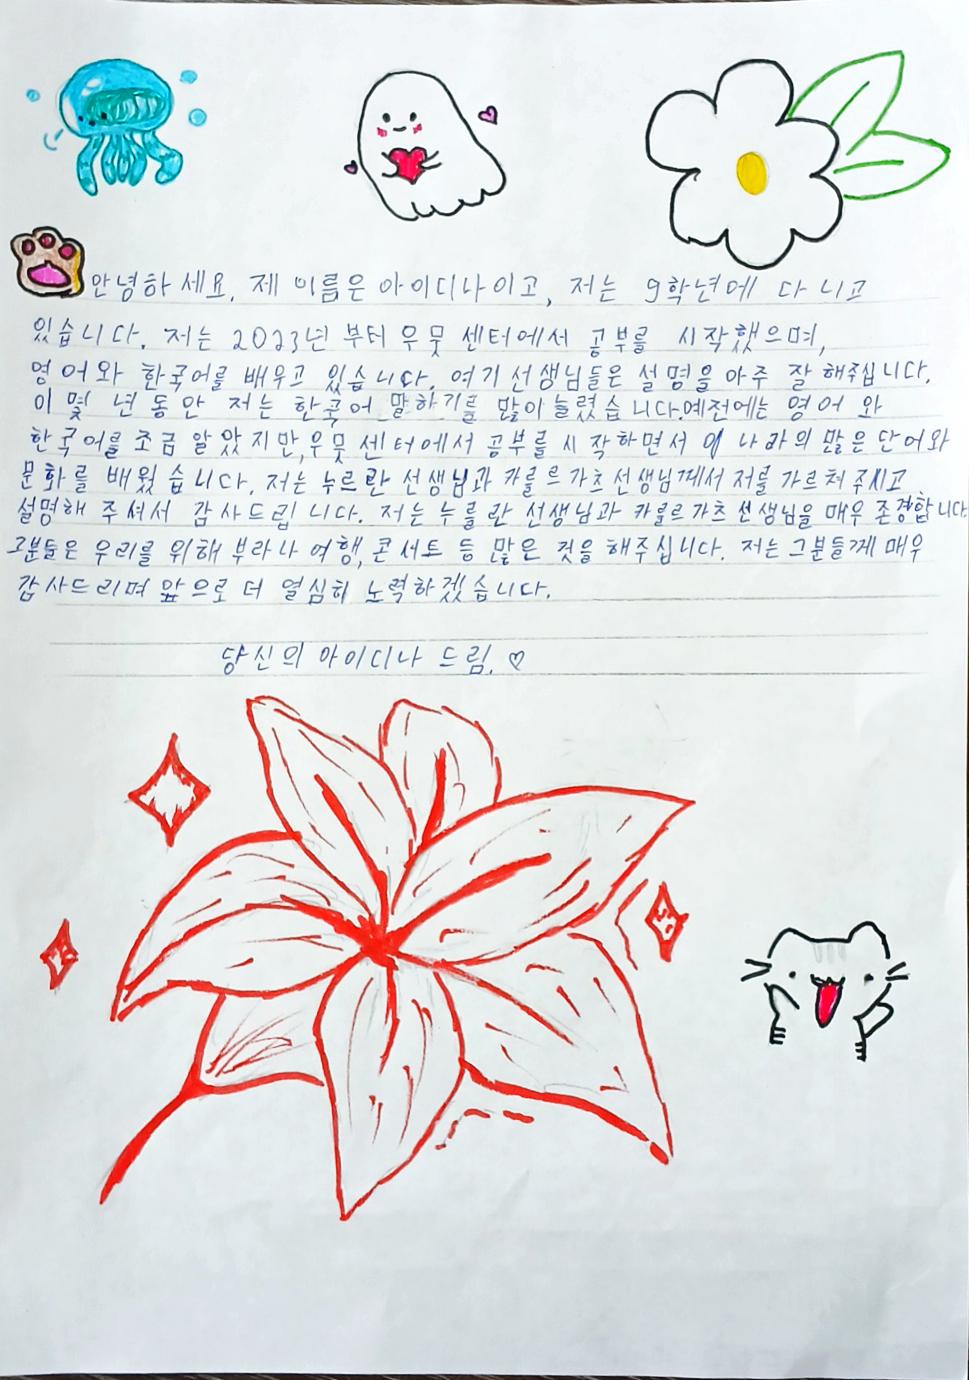 안녕하세요. 제 이름은 아이디나이고, 저는 9학년에 다니고
있습니다. 저는 2023년 부터 우뭇 센터에서 공부를 시작했으며,
영어와 한국어를 배우고 있습니다. 여기 선생님들은 설명을 아주 잘 해주십니다.
이 몇 년 동안 저는 한국어 말하기를 많이 늘렸습니다.예전에는 영어 와
한국어를 조금 알았지만,우뭇 센터에서 공부를 시작하면서 이 나라의 많은 단어와
문화를 배웠습니다. 저는 누르란 선생님과 카를르가츠 선생님께서 저를 가르쳐 주시고
설명해 주셔서 감사드립니다. 저는 누를란 선생님과 카를르가츠 선생님을 매우 존경합니다
그분들은 우리를 위해 부라나 여행,콘서트 등 많은 것을 해주십니다. 저는 그분들께 매우
감사드리며 앞으로 더 열심히 노력하겠습니다.
당신의 아이디나 드림. ♡